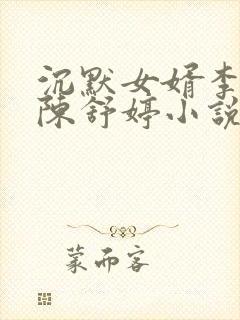 沉默女婿李
陳舒婷小說
蒙而客